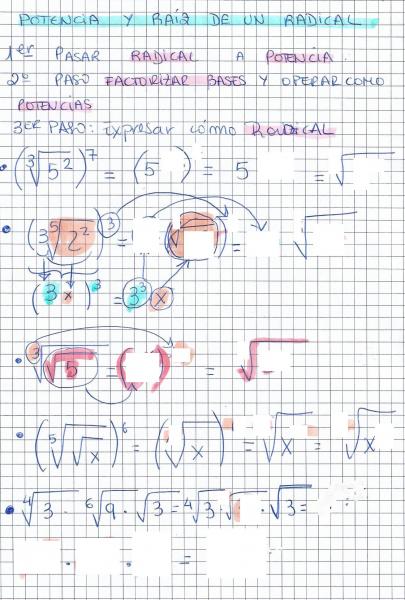 POTENCIA Y RAÍZ DE UN RADICAL
1er PASAR RADICAL A POTENCIA.
2º PASO FACTORIZAR BASES Y OPERAR COMO
POTENCIAS
3ER PASO: Expresar cómo RADICAL
• (∛5²)⁷ = (5 ) = 5 = √
• (3 ⁵√2²)³ = (√ ) = √
(3 x)³ = 3³ x
• ∛√5 = ( ) = √
• (⁵√√x)⁶ = (√x) = √x = √x
• ⁴√3 · ⁶√9 · √3 = ⁴√3 · √ · √3 = ·
· · =